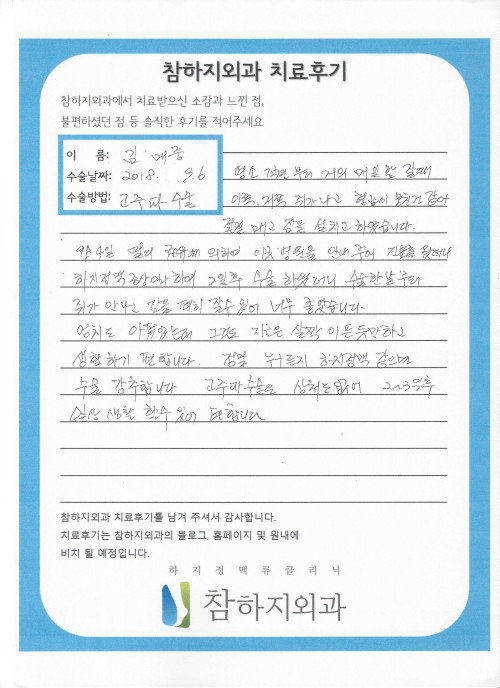 참하지외과 치료후기
참하지외과에서 치료받으신 소감과 느낀 점,
불편하셨던 점 등 솔직한 후기를 적어주세요
이 름: 김
수술날짜: 2018. 9.6
수술방법: 고주파 수술
평소 저녁 부터 거의 매일 밤 잘때
이쪽, 저쪽 쥐가나고 혈액이 못친것 같아
잠을 설치고 하였습니다.
9월4일 딸의 의하여 이곳 병원을 진료를
하지정맥 하여 2일후 수술 하였더니 수술한날부터
쥐가 안나고 잠을 편히 잘수 있어 너무 좋았습니다.
엄지도 아팠었는데 그것도 지금은 살짝 아픈듯만하고
생활하기 편합니다. 정말 누구든지 하지정맥 있으면
수술 강추합니다 고주파수술은 상처도 없어 2~3일후
일상 생활 할수있어 편합니다
참하지외과 치료후기를 남겨 주셔서 감사합니다.
치료후기는 참하지외과의 블로그, 홈페이지 및 원내에
비치 될 예정입니다.
하지정맥류클리닉
참하지외과